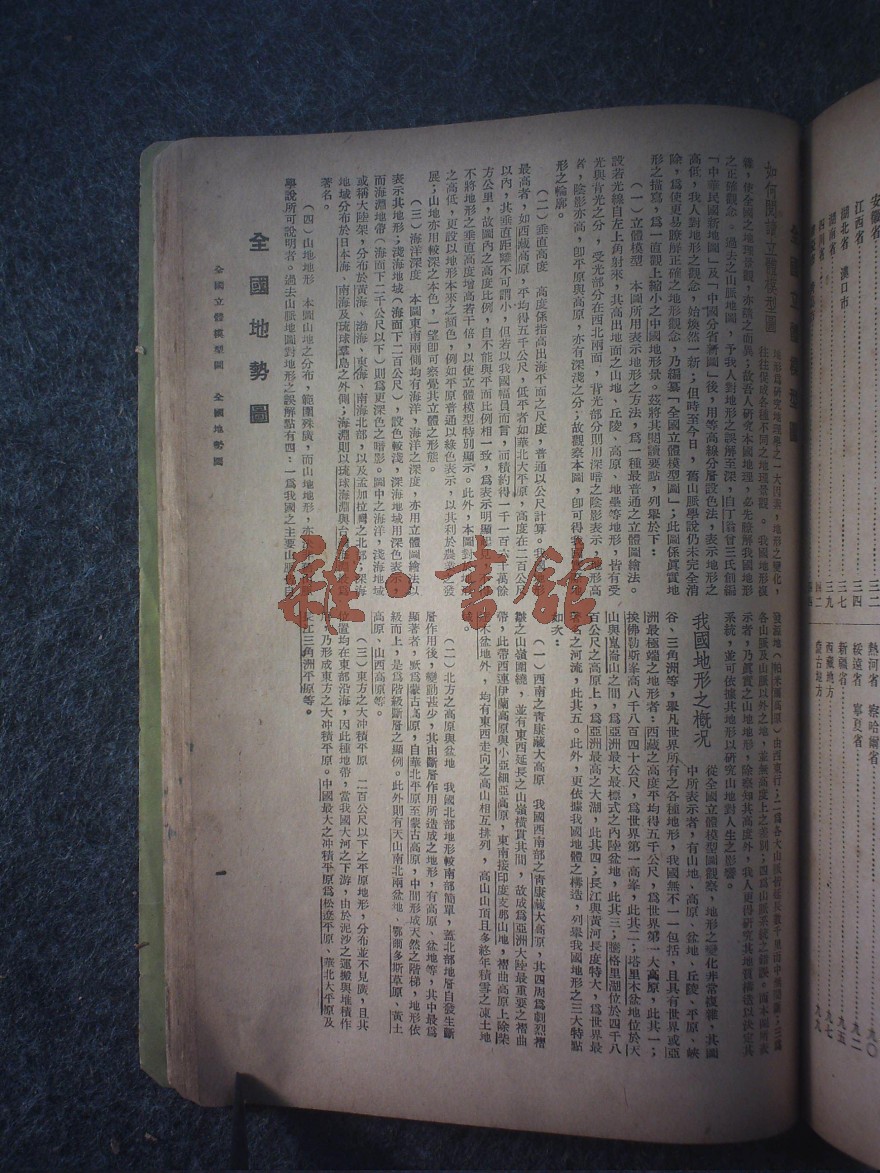 全國立體模型圖
如何閱讀立體模型圖
地形為研究地理學之一大因素，地形之變化，
往往促成各種不同之地理景觀。我國地形複
雜，使全國之地理景觀，亦隨之而異；故吾人研究本國地理，必先瞭解我國地形
之正確觀念。過去之山脈地圖，予我人對地形之誤解至深，自丁翁曾三氏創編
「中華民國新地圖」及「中國分省新圖」後，用等高線分層設色法，表示地形之
高低，我人對地形之觀念，始煥然一新；但時至今日，舊山脈學說仍未完全消
除，為使更易瞭解正確之地形觀念，乃編纂「全國立體模型圖」；此圖係眞實地
形之描寫，為一直觀上縮小之中國地形景。茲將其閱讀要點，列舉於下：
（一）立體模型　本圖所用表示地形之方法，為一種最普通之立體圖繪法。
設若光線自左上角射來，其高出地面之山地、丘陵、高原、地壘等地形，皆有受
光與背光之分，受光部分在西北兩面，背光部分則用深暗之陰影表示，地形高
者，陰影亦高，卽平原與高原，亦有深淺之分；故觀察本圖，卽可得
形之輪廓。
（二）垂直高度　高度係指高出海平面之尺度，普通以公尺計算。我國
最高者，如西藏高原，平均得五千公尺，低平者如華北大平原，高度在二百公尺
以內，其垂直距離不可謂小，但若以我國幅員而言，面積約得一千一百六十萬餘
方公里，故圖內之高度比例，自不能與平面比例相一致，為表示明顯起見
不將地形之垂直高度增高若干倍，以使立體模型特別顯示。此外，本圖對
之高低，更設以地形本來之顏色，例如平原普通以綠色表示，以其利於農業之發
展；山地亦用較深之本色，一望卽可察覺其立體之形態。
（三）海洋深度　本圖東南兩側均有海洋，海洋之深度，亦用立體圖繪法以
表示其地形；淺海地域（海面下二百公尺），設色較淺，深海地域用深色表示，
而海淵地帶（海面下二千公尺以下）則為更深色之暗影。圖中之海洋，淺海地域
或稱大陸架，分布於黃海、渤海、東海、南海北部，以及孟加拉灣之北部；深海
地域分布於日本海、南海及琉球羣島之外側；海淵則以琉球海淵與台
著名。
（四）山地地形　本圖山地之分布，範圍殊廣，而山地地形，亦
學說所可說明者。過去山脈地圖對地形之誤解點有四：一為我國之主要山脈
全國地勢圖
全國立體模型圖　全國地勢圖
發源地（帕米爾高原）由西東行；二為各大山脈皆延長數千里而中無間斷；三為
各山脈及山脈以外之地，並無高度上之差別；四為山脈系統之錯誤。而本圖所表
示者，乃眞實之山地地形，除察知其高度外，我人更得研究其地質構造以決定其
系統，並可依據其地形以研究山地對人生之影響。
我國地形之概况
從全國立體模型圖觀察，地形之變化非常複雜、其圖
中所表示者，有山地、高原、盆地、丘陵、平原、峽
谷、三角洲等，舉凡世界所有之各種地形，我國無不一一包括，且具有世界或亞
洲最極端之地形者：西藏之高度平均得五千公尺，為世界第一大高原，此其一；
埃佛勒斯峯高八千八百四十公尺，為世界第一高峯，此其二；塔里木盆地位於天
山與崑崙山之間，為亞洲最大最標式之內陸盆地，此其三；騰格里湖位於四千八
百公尺之高原上，為亞洲最高之大湖，此其四；長江與黃河長度特大，為世界最
著名之河流，此其五。此外，更依據我國地體之構造，列舉我國地形之三大特點
如次：
（一）西南之青康藏大高原　我國西南部之青康藏大高原，其四周為劇烈褶
皺之山嶺圍繞，並有東西延長之山嶺橫貫其間，故成為亞洲大陸最重要之褶曲
帶，此帶西連伊蘭高原與小亞細亞高原，東南接印度支那山地，褶曲高原上除柴
木盆地外，均有東西走向之高山相互排列，高山山頂且多終年積雪之凍土地
域。
（二）北方之高原與盆地　我國北部地形較南部簡單，蓋北部地層自發生斷
層作用後，變動甚少，其由斷層作用所造成之地形，有高原、盆地等，其中最為
顯著者，厥為蒙古高原，自華北平原至蒙古高原，中間形成天然之階梯，地形依
級而上，是為階級斷層之顯例。此外則有天山南北兩盆地、鄂爾多斯草原、黃土
高原、山西高原等。
（三）東方之大冲積平原　二百公尺以下之平原地形，分布並不見廣，且其
位置均在東部沿海，因此種地帶，當我國大河之下游，由於泥沙之運搬與堆積作
用，乃形成東方之大冲積平原。中國最大之冲積平原為松遼平原、華北大平原及
長江三角洲平原等。
安徽省
三二
江西省
三四
湖北省　漢口市
三七
湖南省
三九
四川省
四二
熱河省　察哈爾省
九〇
綏遠省　寧夏省
九二
新疆省
九五
西藏地方
九七
蒙古地方
九九
雜書館